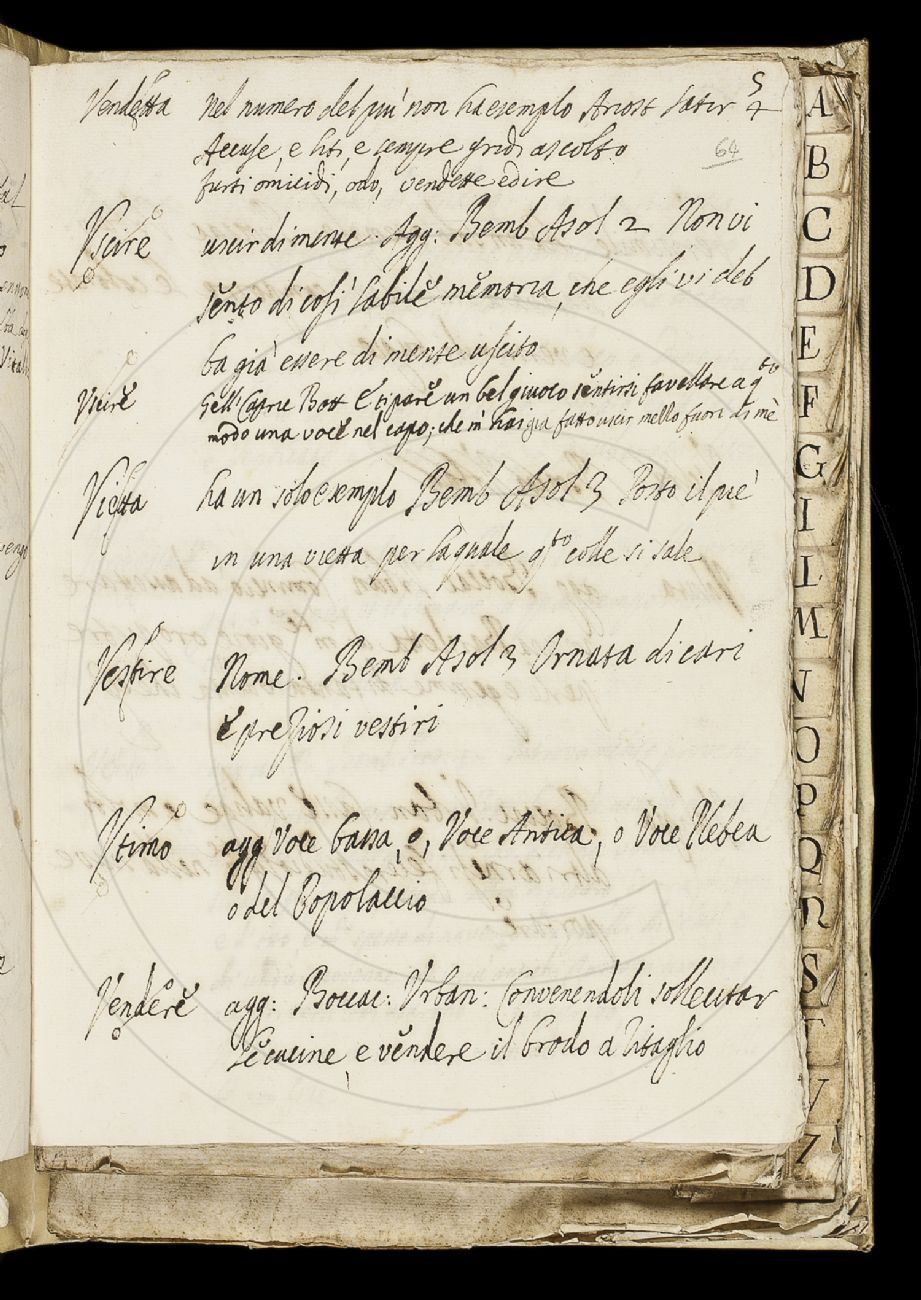 Vendetta Nel numero del più non ha esempio Ariost Satir 4
5
64
Accuse, e liti, e sempre gridi ascolto
furti omicidi, odio, vendette ed ire
Vscire uscir di mente. Agg: Bemb Asol 2 Non vi
sento di così labile memoria, che egli vi deb
ba già essere di mente uscito
Vscire Gell: Capric Bott E ti pare un bel giuoco sentirsi favellare a q.to
modo una voce nel capo; che m' hai già fatto uscir mezzo fuori di me
Vietta ha un solo esemplo Bemb Asol 3 Posto il piè
in una vietta per la quale q.to colle si sale
Vestire Nome. Bemb Asol 3 Ornata di cari
e preziosi vestiri
Vtimo agg Voce bassa, o, Voce Antica, o Voce Plebea
o del Popolaccio
Vendere agg: Boccac: Vrban: Convenendoli sollecitar
le cucine, e vendere il brodo a ritaglio
A
B
C
D
E
F
G
I
L
M
N
O
P
Q
R
S
T
V
Z